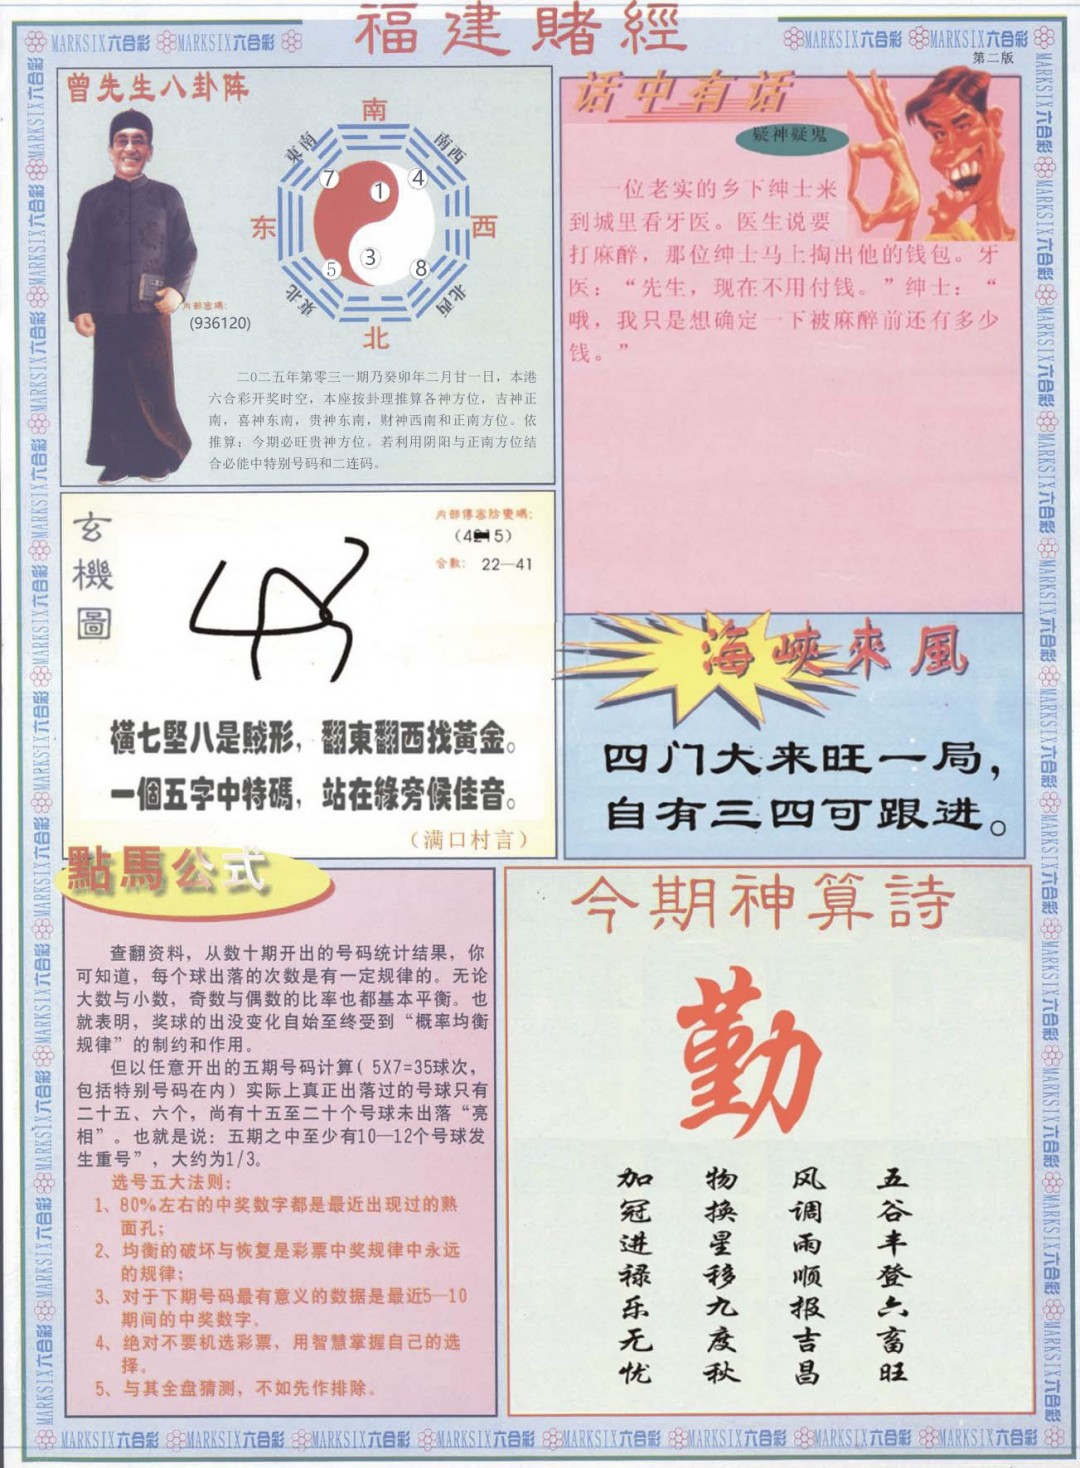 福建賭經
MARKSIX六合彩 MARKSIX六合彩
MARKSIX六合彩 MARKSIX六合彩
第二版
曾先生八卦阵
南
東南
南西
7
1
4
东
西
5
3
8
東北
北西
北
内部密碼:
(936120)
二0二五年第零三一期乃癸卯年二月廿一日，本港
六合彩开奖时空，本座按卦理推算各神方位，吉神正
南，喜神东南，贵神东南，财神西南和正南方位。依
推算：今期必旺贵神方位。若利用阴阳与正南方位结
合必能中特别号码和二连码。
话中有话
疑神疑鬼
一位老实的乡下绅士来
到城里看牙医。医生说要
打麻醉，那位绅士马上掏出他的钱包。牙
医：“先生，现在不用付钱。”绅士：“
哦，我只是想确定一下被麻醉前还有多少
钱。”
玄機圖
内部傳密防變碼:
合數: 22—41
橫七堅八是賊形，翻東翻西找黃金。
一個五字中特碼，站在緣旁候佳音。
（满口村言）
海峽來風
四门大来旺一局，
自有三四可跟进。
點馬公式
查翻资料，从数十期开出的号码统计结果，你
可知道，每个球出落的次数是有一定规律的。无论
大数与小数，奇数与偶数的比率也都基本平衡。也
就表明，奖球的出没变化自始至终受到“概率均衡
规律”的制约和作用。
但以任意开出的五期号码计算(5X7=35球次，
包括特别号码在内)实际上真正出落过的号球只有
二十五、六个，尚有十五至二十个号球未出落“亮
相”。也就是说：五期之中至少有10—12个号球发
生重号”，大约为1/3。
选号五大法则：
1、80%左右的中奖数字都是最近出现过的熟
面孔；
2、均衡的破坏与恢复是彩票中奖规律中永远
的规律；
3、对于下期号码最有意义的数据是最近5—10
期间的中奖数字。
4、绝对不要机选彩票，用智慧掌握自己的选
择。
5、与其全盘猜测，不如先作排除。
今期神算詩
勤
五谷丰登六畜旺
风调雨顺报吉昌
物换星移九度秋
加冠进禄乐无忧
MARKSIX六合彩 MARKSIX六合彩 MARKSIX六合彩 MARKSIX六合彩 MARKSIX六合彩 MARKSIX六合彩 MARKSIX六合彩 MARKSIX六合彩